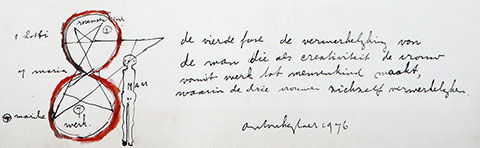 1 lotti
7 maria
marike
①
MAN
⑦
werk.
de vierde fase de verwerkelijking van
de man die als creativiteit de vrouw
vanuit werk tot mensenkind maakt,
waarin de drie vrouwen zichzelf verwerkelijken.
1976